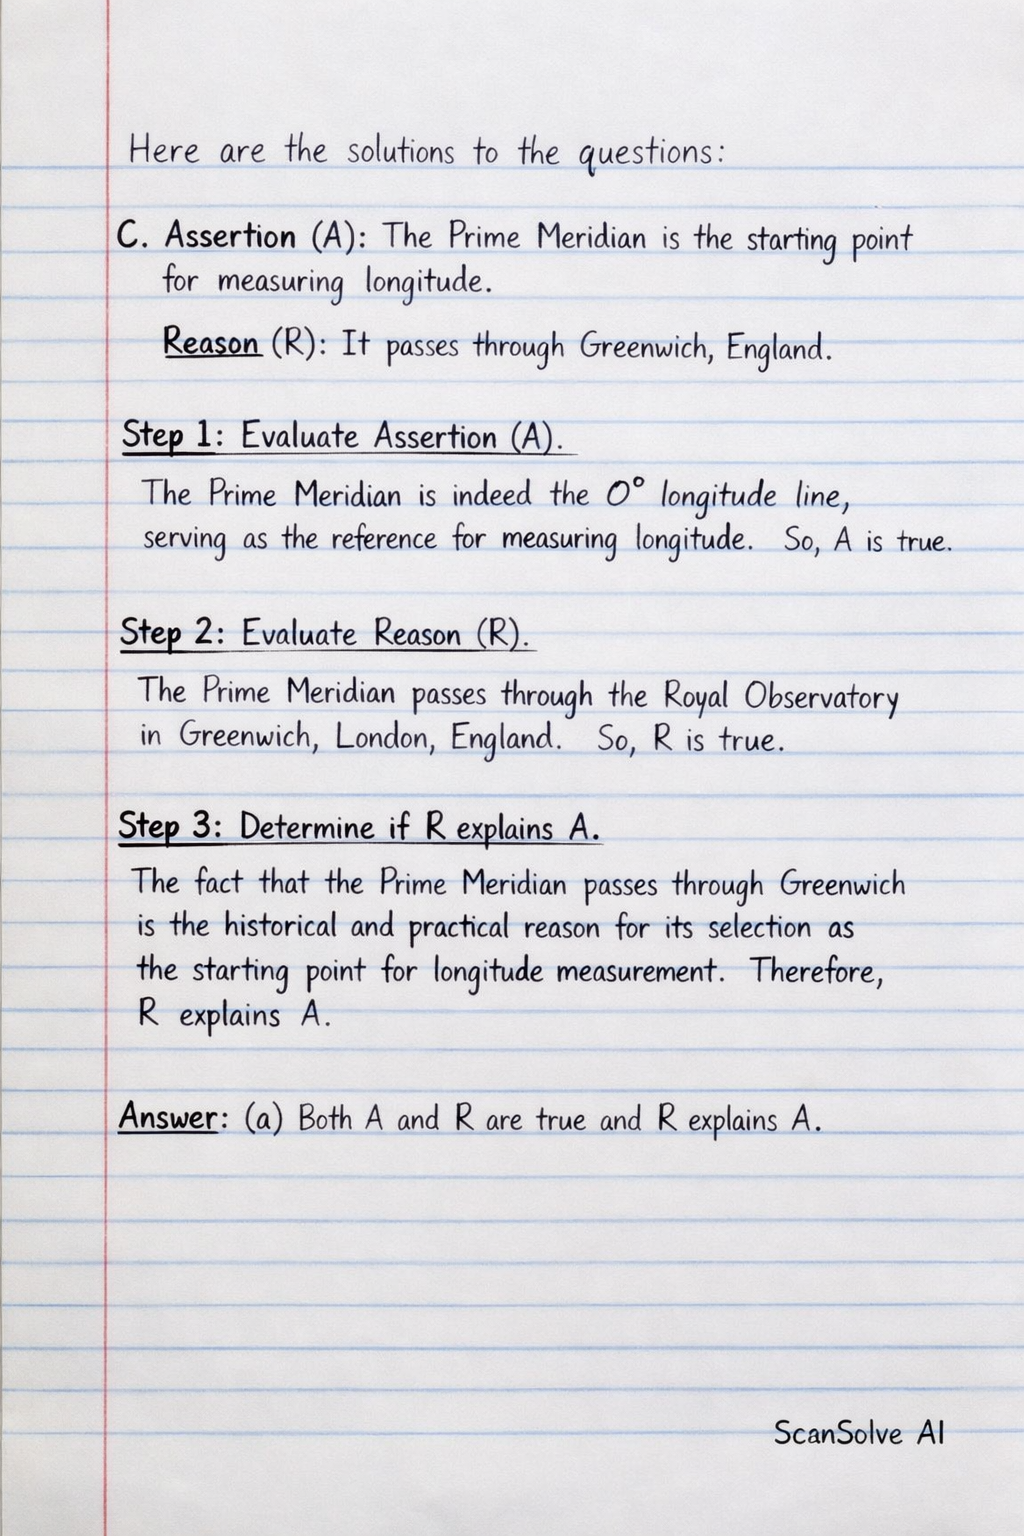 Here are the solutions to the questions:
C. Assertion (A): The Prime Meridian is the starting point
for measuring longitude.
Reason (R): It passes through Greenwich, England.
Step 1: Evaluate Assertion (A).
The Prime Meridian is indeed the 0° longitude line,
serving as the reference for measuring longitude. So, A is true.
Step 2: Evaluate Reason (R).
The Prime Meridian passes through the Royal Observatory
in Greenwich, London, England. So, R is true.
Step 3: Determine if R explains A.
The fact that the Prime Meridian passes through Greenwich
is the historical and practical reason for its selection as
the starting point for longitude measurement. Therefore,
R explains A.
Answer: (a) Both A and R are true and R explains A.
ScanSolve AI